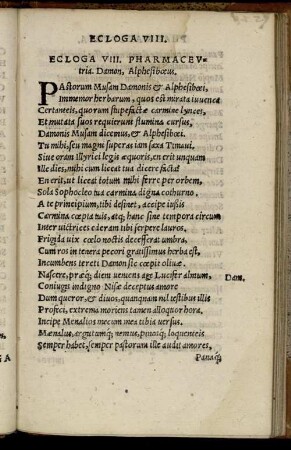 ECLOGA VIII.
ECLOGA VIII. PHARMACEV-
tria. Damon, Alphesibœus.
PAstorum Musam Damonis & Alphesibœi,
Immemor herbarum, quos est mirata iuuenca
Certanteis, quorum stupefactæ carmine lynces,
Et mutata suos requierunt flumina cursus,
Damonis Musam dicemus, & Alphesibœi.
Tu mihi, seu magni superas iam saxa Timaui,
Siue oram Illyrici legis æquoris, en erit unquam
Ille dies, mihi cum liceat tua dicere facta?
En erit, ut liceat totum mihi ferre per orbem,
Sola Sophocleo tua carmina digna cothurno.
A te principium, tibi desinet, accipe iussis
Carmina cœpta tuis, atq; hanc sine tempora circum
Inter uictrices ederam tibi serpere lauros.
Frigida uix cœlo noctis decesserat umbra,
Cum ros in tenera pecori gratissimus herba est.
Incumbens tereti Damon sic cœpit oliuæ.
Nascere, præq; diem ueniens age Lucifer almum,
Dam.
Coniugis indigno Nisæ deceptus amore
Dum queror, & diuos, quanquam nil testibus illis
Profeci, extrema moriens tamen alloquor hora.
Incipe Menalios mecum mea tibia uersus.
Mænalus, argutumq; nemus, pinosq; loquenteis
Semper habet, semper pastorum ille audit amores,
Panaq;